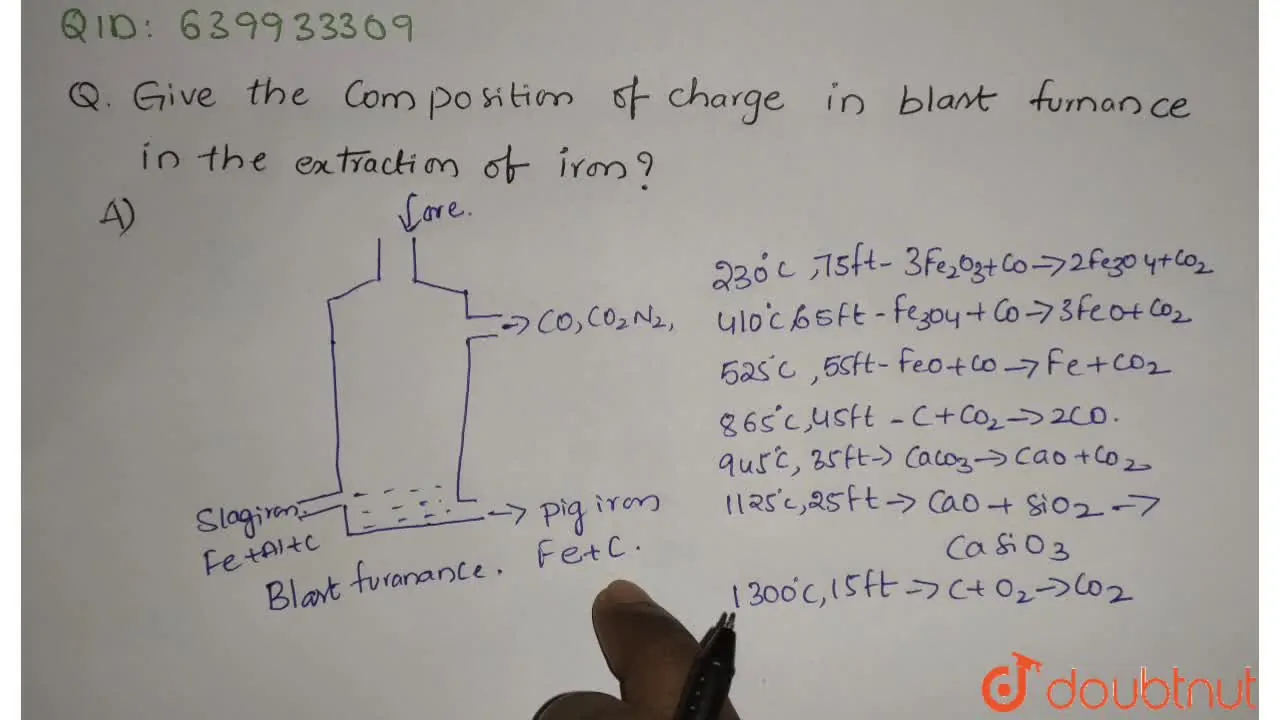 QID: 639933309
Q. Give the Composition of charge in blast furnance
in the extraction of iron?
A)
ore.
→ CO, CO2 N2,
Slagiron
Fe+Al+C
→ pig iron
Fe+C.
Blast furanance.
230°C, 75ft- 3Fe2O3+CO→2Fe3O4+CO2
410°C, 65ft - Fe3O4 + CO→3FeO+CO2
525°C, 55ft- FeO+CO→Fe+CO2
865°C, 45ft - C+CO2→2CO.
945°C, 35ft→ CaCO3→CaO+CO2
1125°C, 25ft→ CaO + SiO2 →
CaSiO3
1300°C, 15ft→ C+O2→CO2
doubtnut